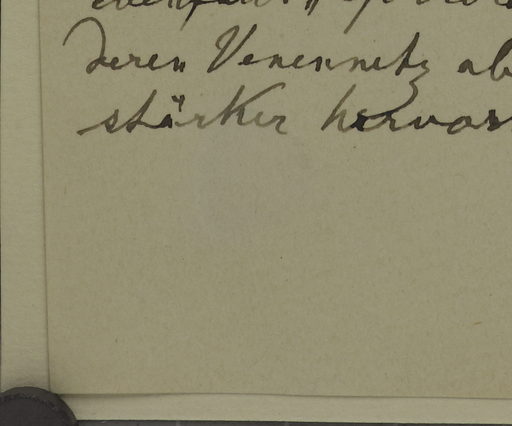 deren Venennetz ab
stärker hervor